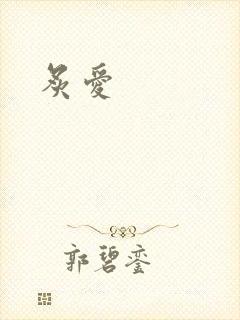 炙愛
郭碧鑾